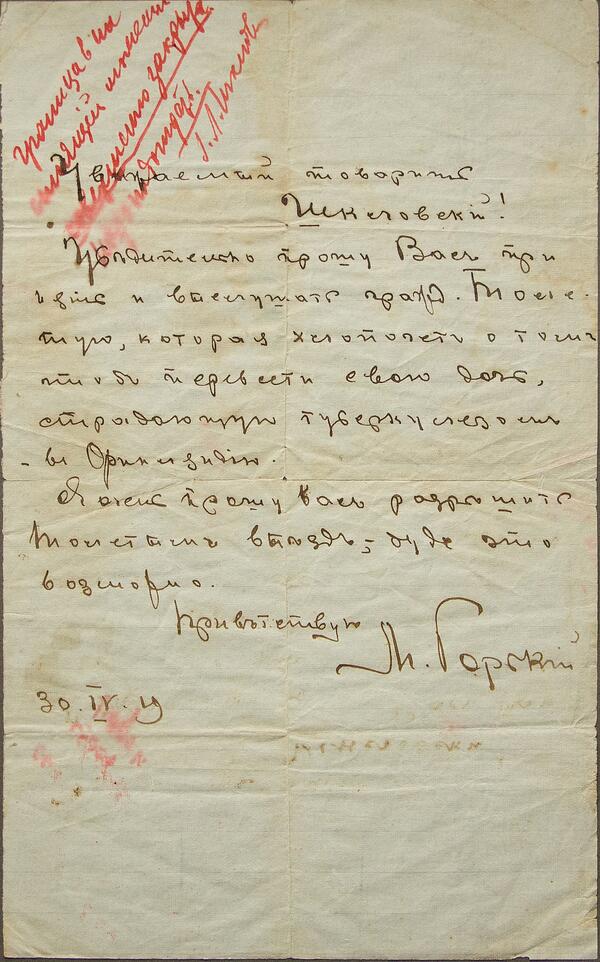 граница в на
стоящей момент
совершенно закрыта
Уважаемый товарищ
Шкловский!
Убедительно прошу Васъ при
нять и выслушать гражд. Толс-
тую, которая хлопочетъ о томъ
чтобъ перевести свою дочь,
страдающую туберкулезомъ
- въ Финляндiю.
Я очень прошу васъ разрѣшить
Толстымъ выѣздъ, - буде это
возможно.
Привѣтствую
М. Горькiй
30.IV.19